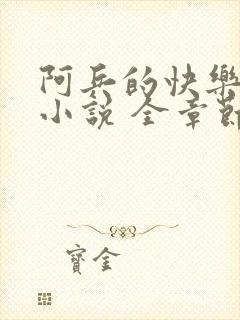 阿兵的快樂
小說 全章節
寶金